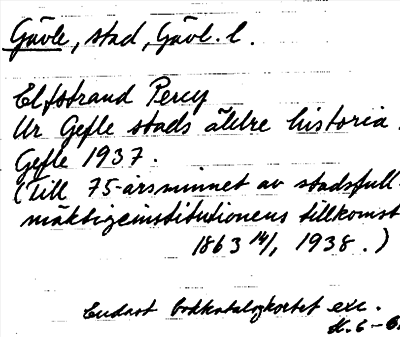 Gävle, stad, Gävl. l.
Elfstrand Percy
Ur Gefle stads äldre historia.
Gefle 1937.
(Till 75-årsminnet av stadsfull-
mäktigeinstitutionens tillkomst
1863 14/1, 1938.)
Endast bokkatalogkortet exc.
K. 6-